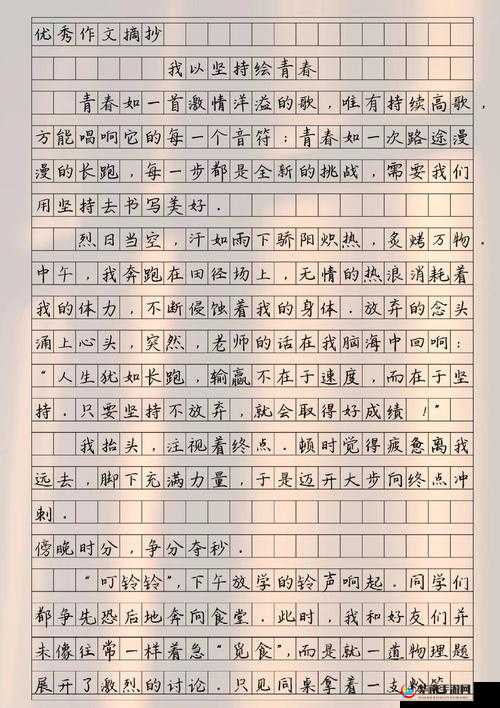 优秀作文摘抄
我以坚持绘青春
青春如一首激情洋溢的歌，唯有持续高歌，
方能唱响它的每一个音符；青春如一次路途漫
漫的长跑，每一步都是全新的挑战，需要我们
用坚持去书写美好．
烈日当空，汗如雨下骄阳炽热，炙烤万物．
中午，我奔跑在田径场上，无情的热浪消耗着
我的体力，不断侵蚀着我的身体．放弃的念头
涌上心头，突然，老师的话在我脑海中回响：
“人生犹如长跑，输赢不在于速度，而在于坚
持．只要坚持不放弃，就会取得好成绩！”
我抬头，注视着终点．顿时觉得疲惫离我
远去，脚下充满力量，于是迈开大步向终点冲
刺．
傍晚时分，争分夺秒．
“叮铃铃”，下午放学的铃声响起．同学们
都争先恐后地奔向食堂．此时，我和好友们并
未像往常一样着急“觅食”，而是就一道物理题
展开了激烈的讨论．只见同桌拿着一支粉笔